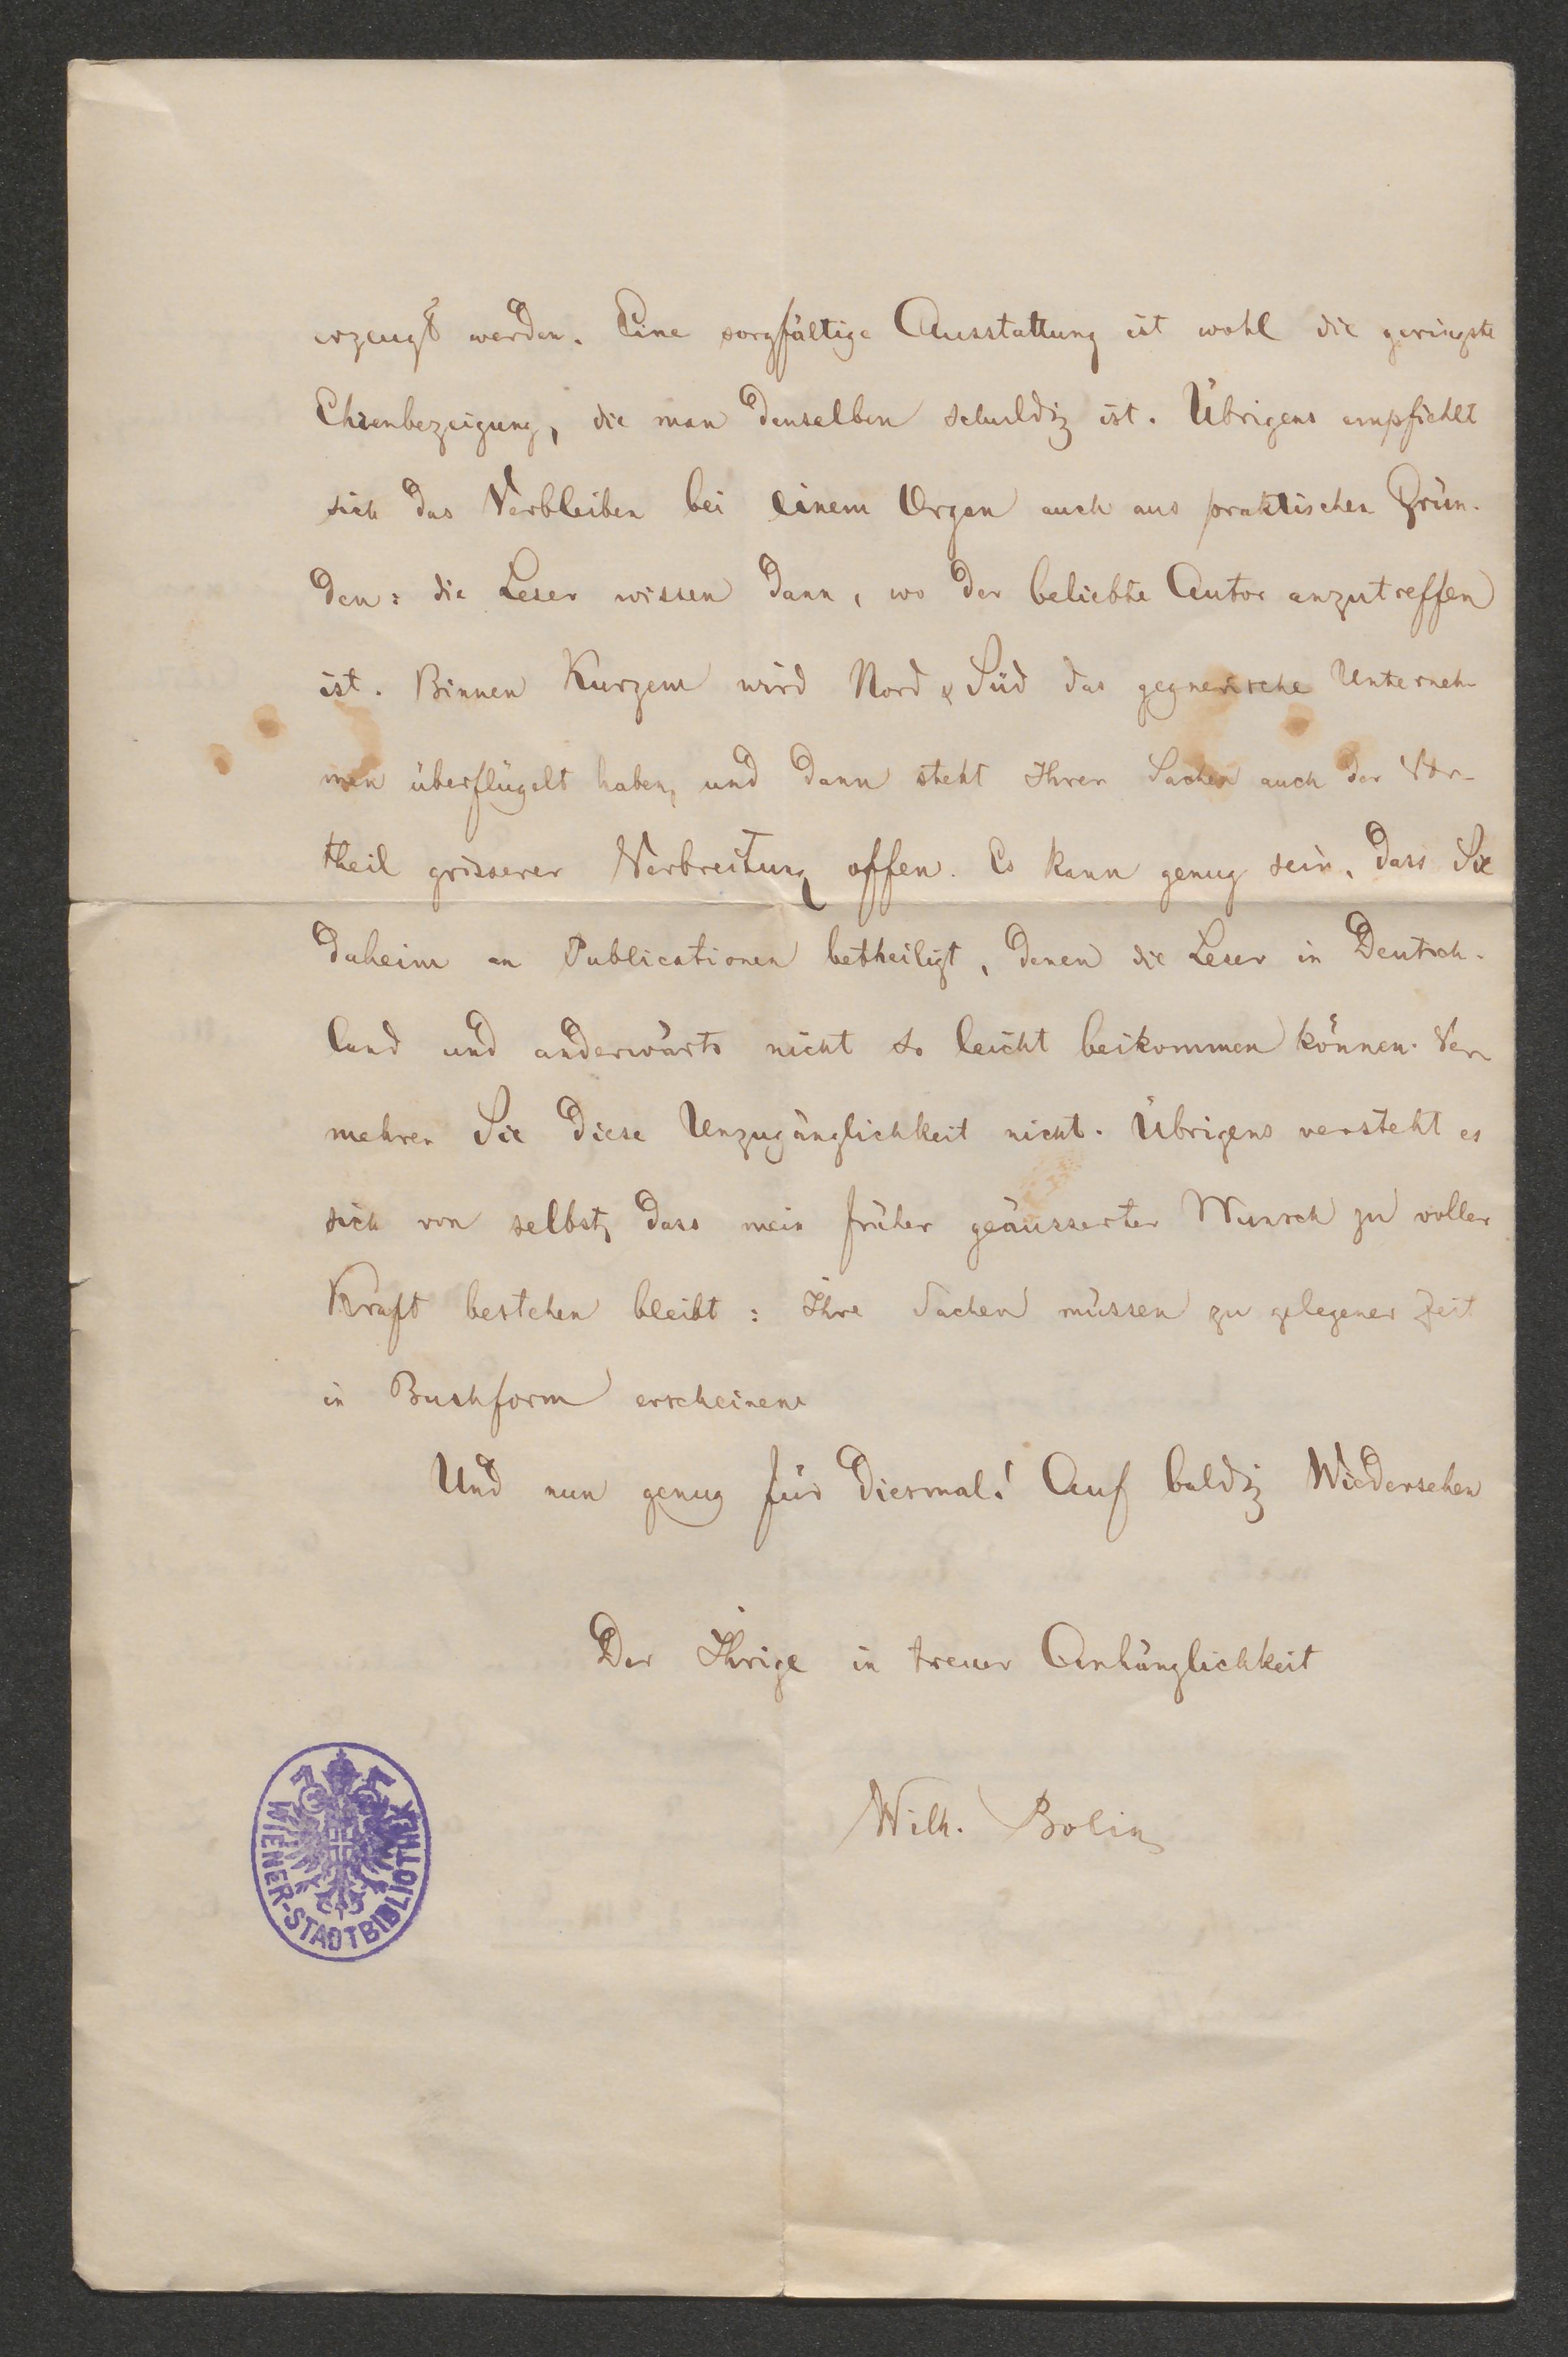 erzeugt werden. Eine sorgfältige Ausstattung ist wohl die geringste
Ehrenbezeigung, die man denselben schuldig ist. Übrigens empfiehlt
sich das Verbleiben bei einem Organ auch aus praktischen Grün-
den: die Leser wissen dann, wo der beliebte Autor anzutreffen
ist. Binnen Kurzem wird Nord & Süd das gegnerische Unterneh-
men überflügelt haben, und dann steht Ihren Sachen auch der Vor-
theil grösserer Verbreitung offen. Es kann genug sein, dass Sie
daheim an Publicationen betheiligt, denen die Leser in Deutsch-
land und anderwärts nicht so leicht beikommen können. Ver-
mehren Sie diese Unzugänglichkeit nicht. Übrigens versteht es
sich von selbst, dass mein früher geäusserter Wunsch zu voller
Kraft bestehen bleibt: Ihre Sachen müssen zu gelegener Zeit
in Buchform erscheinen.
Und nun genug für diesmal! Auf baldig Wiedersehen
Der Ihrige in treuer Anhänglichkeit
Wilh. Bolin
WIENER-STADTBIBLIOTHEK